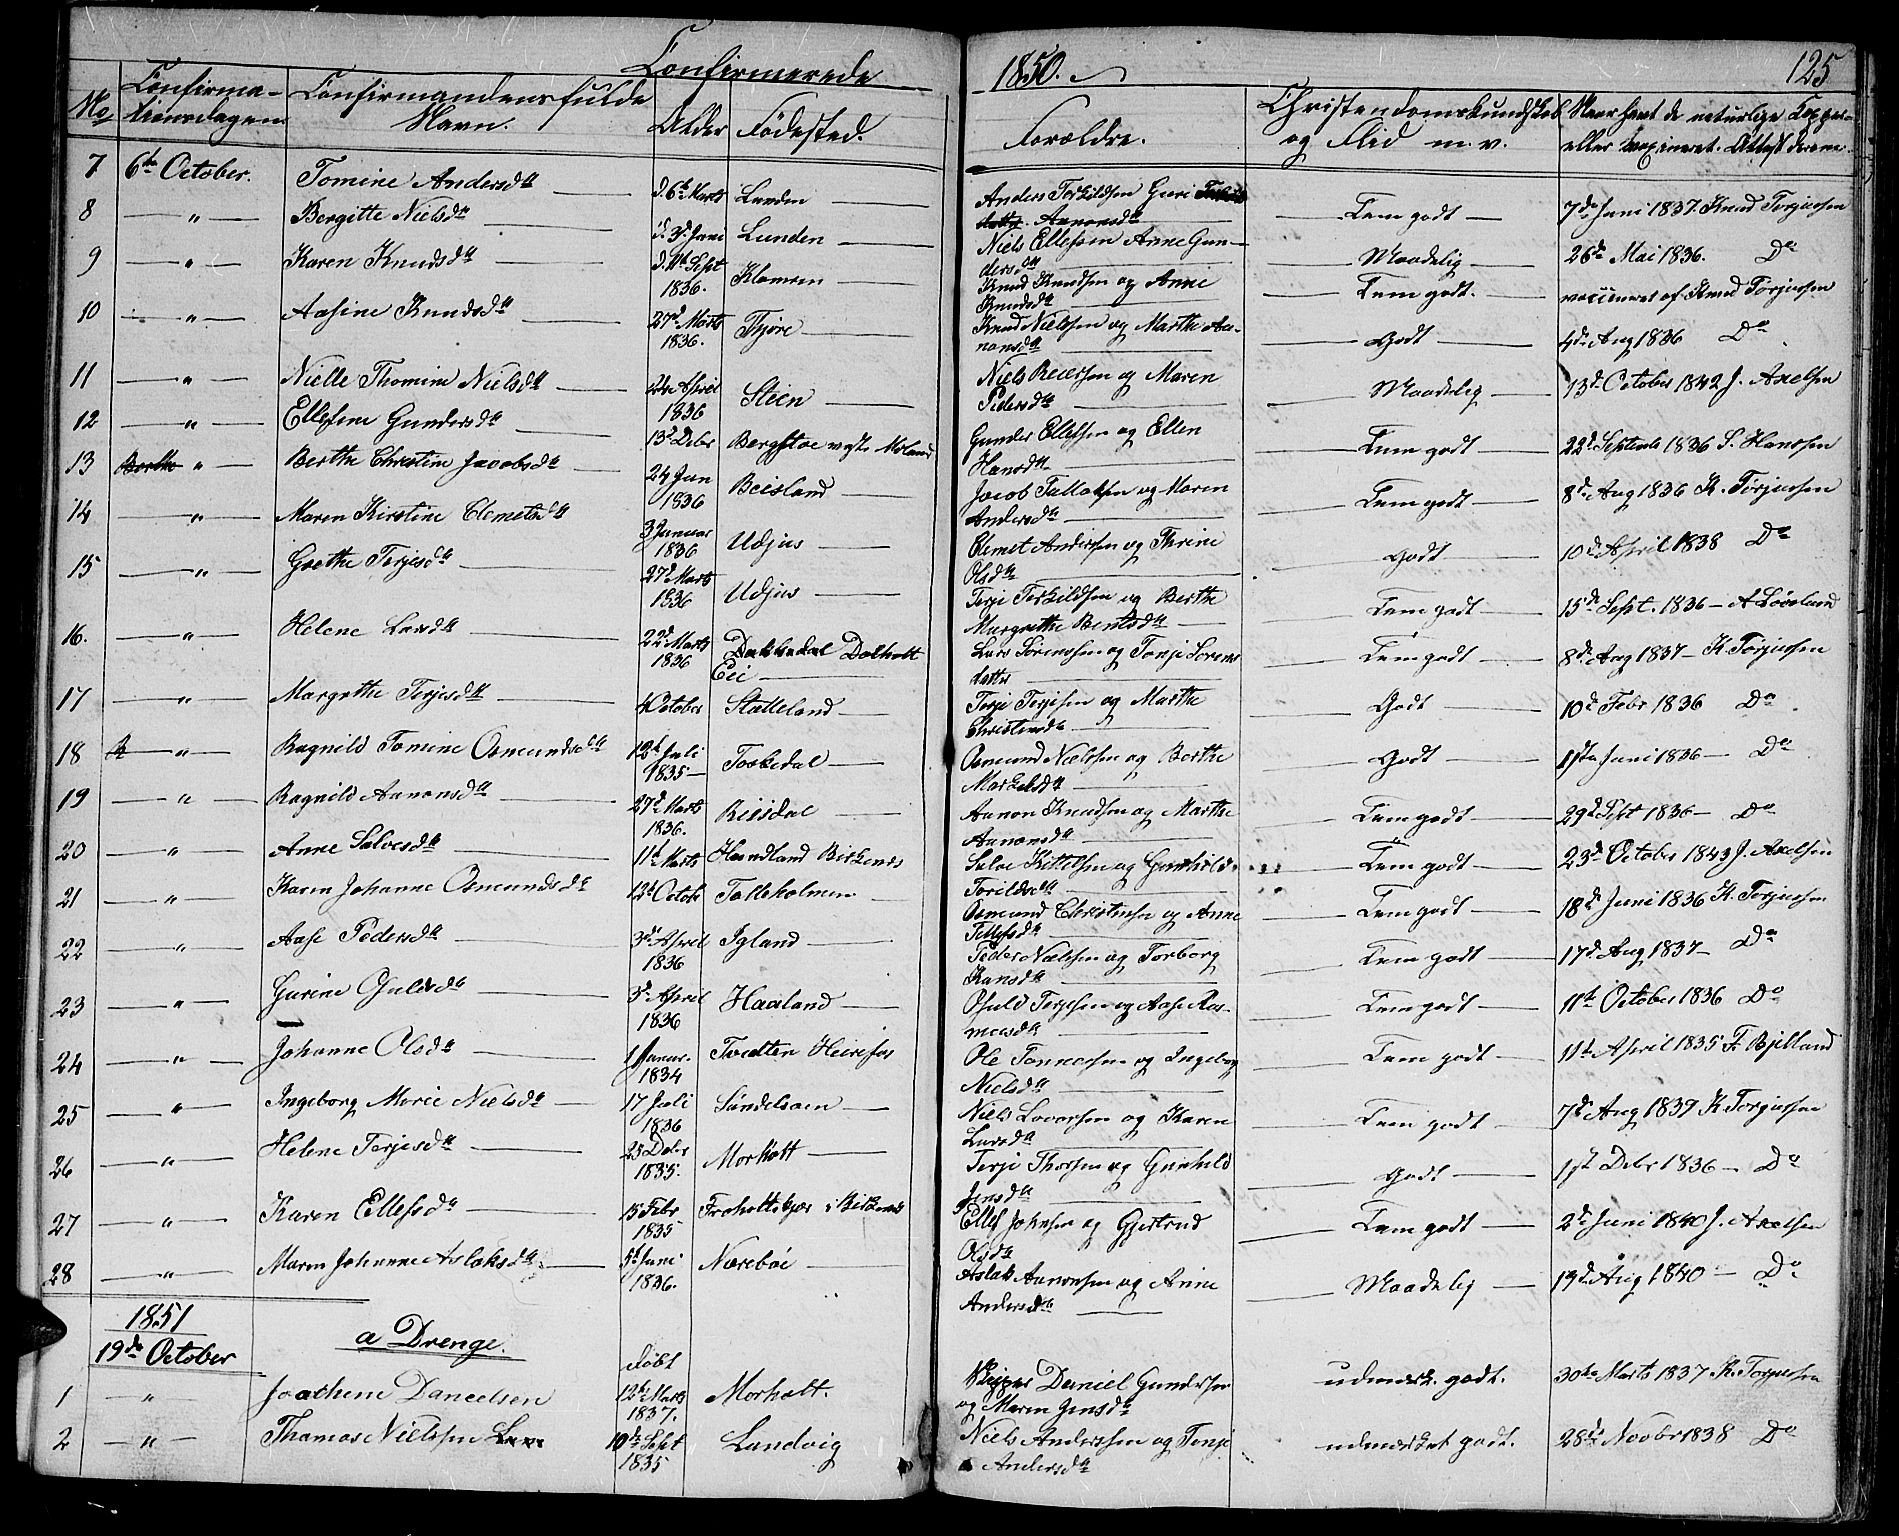 Confirmerede 1850. 125
No Confirma-tionsdagen Confirmandens fulde Navn. Alder Fødested. Forældre. Christendomskundskab og Flid m. v. Naar havt de naturlige Kopper eller vaxineret. Attest derom
7 6te October. Tomine Andersdtr d. 6te Marts Lunden Anders Terkildsen Guri Aanonsdtr Temgodt 7de Juni 1837. Knud Torjussen
8 " Bergitte Nielsdtr d. 3d. Juni Lunden Niels Ellefsen Anne Gun-
dersdtr Maadelig 26de Mai 1836. Do
9 " Karen Knudsdtr d. 11te Sept
1836. Klomren Knud Knudsen og Anne
Knudsdtr Temgodt. vaccineret af Knud Torjussen
10 " Aasine Knudsdtr 27d. Marts
1836. Thore Knud Nielssen og Marthe Aa-
nonsdtr Godt 4de Aug 1836 Do
11 " Nielle Thomine Nielsdtr April
1836 Steen Niels Reiersen og Maren
Pedersdtr Maadelig 13d. October 1842 J. Axelsen
12 " Ellefine Gundersdtr 13d Debr Bergstøe vestr. Moland Gunder Ellefsen og Ellen
Hansdtr Temgodt 22de Septemb 1836 S. Hanssen
13 " Berthe Christine Jacobsdtr 24 Jan
1836 Beisland Jacob Tallaksen og Maren
Andersdtr Temgodt 8de Aug 1836 K. Torjussen
14 " Maren Kirstine Clemetsdtr 3 Januar
1836 Udjus Clemet Anderssen og Thrine
Olsdtr Godt 10de April 1838 Do
15 " Grethe Terjesdtr 27d Marts
1836 Udjus Terje Terkildsen og Berthe
Margrethe Bentsdtr Temgodt 15de Sept. 1836 A Løvland
16. " Helene Larsdtr 22d. Marts
1836 Dalholt
Eie Lars Sørenssen og Tonje Sørens
datter Temgodt 8de Aug 1837 K. Torjussen
17 " Margrethe Terjesdtr 4 October Stølleland Terje Terjesen og Marthe
Christensdtr Godt 10de Febr 1836 Do
18 " Ragnild Tomine Osmundsdtr 12te Juli
1835 Toskedal Osmund Nielssen og Berthe
Godt 1ste Juni 1836 Do
19 " Ragnild Aanonsdtr 27d. Marts
1836. Reisdal Aanon Knudssen og Marthe
Aanonsdtr Temgodt 29de Sept 1836 Do
20 " Anne Salvesdtr 11te Marts Haandland Birkenes Salve Kittelsen og Gunhild
Torildsdtr Temgodt 23de October 1843 J. Axelsen
21 " Karen Johanne Osmundsdtr 12te Octobr Talleholmen Osmund Christensen og Anne
Tellefsdtr Temgodt 18de Juni 1836 K. Torjussen
22 " Aase Pedersdtr 3de April
1836 Igland Peder Nielssen og Torborg
Hansdtr Temgodt 17de Aug 1837 Do
23 " Gurine Osuldsdtr 3de April
1836 Haaland Osuld Terjesen og Aase Ras-
musdtr Temgodt 11te October 1836 Do
24 " Johanne Olsdtr 1 Januar.
1834 Tveitten Heirefos Ole Tonnessen og Ingeborg
Nielsdtr Temgodt 11te April 1835 F. Bjelland
25 " Ingeborg Marie Nielsdtr 17 Juli
1836 Søndelsaen Niels Lovorsen og Karen
Larsdtr Temgodt 7de Aug 1839 K. Torjussen
26 " Helene Terjesdtr 23 Debr
1835. Morholt Terje Thorsen og Gunhild
Jensdtr Godt 1ste Debr 1836 Do
27 " Karen Ellefsdtr 15 Febr
1835 Froholtskjær i Birkenes Ellef Johnsen og Gjertrud
Olsdtr Temgodt 2de Juni 1840 J. Axelsen
28 " Maren Johanne Aslaksdtr 5te Juni
1836. Nærebøe Aslak Aanonsen og Anne
Andersdtr Maadelig 13de Aug 1840 Do
1851
19de October a Drenge.
Født
1 " Joachene Danielsen 12te Marts
1837. Morholt. Daniel Gundersen
og Maren Jensdtr udmerk. godt. 30te Marts 1837 K. Torjussen
2 " Thomas Nielssen 10de Sept
1835 Landvig Niels Anderssen og Tonje
Andersdtr udmerket godt. 28de Novbr 1838 Do